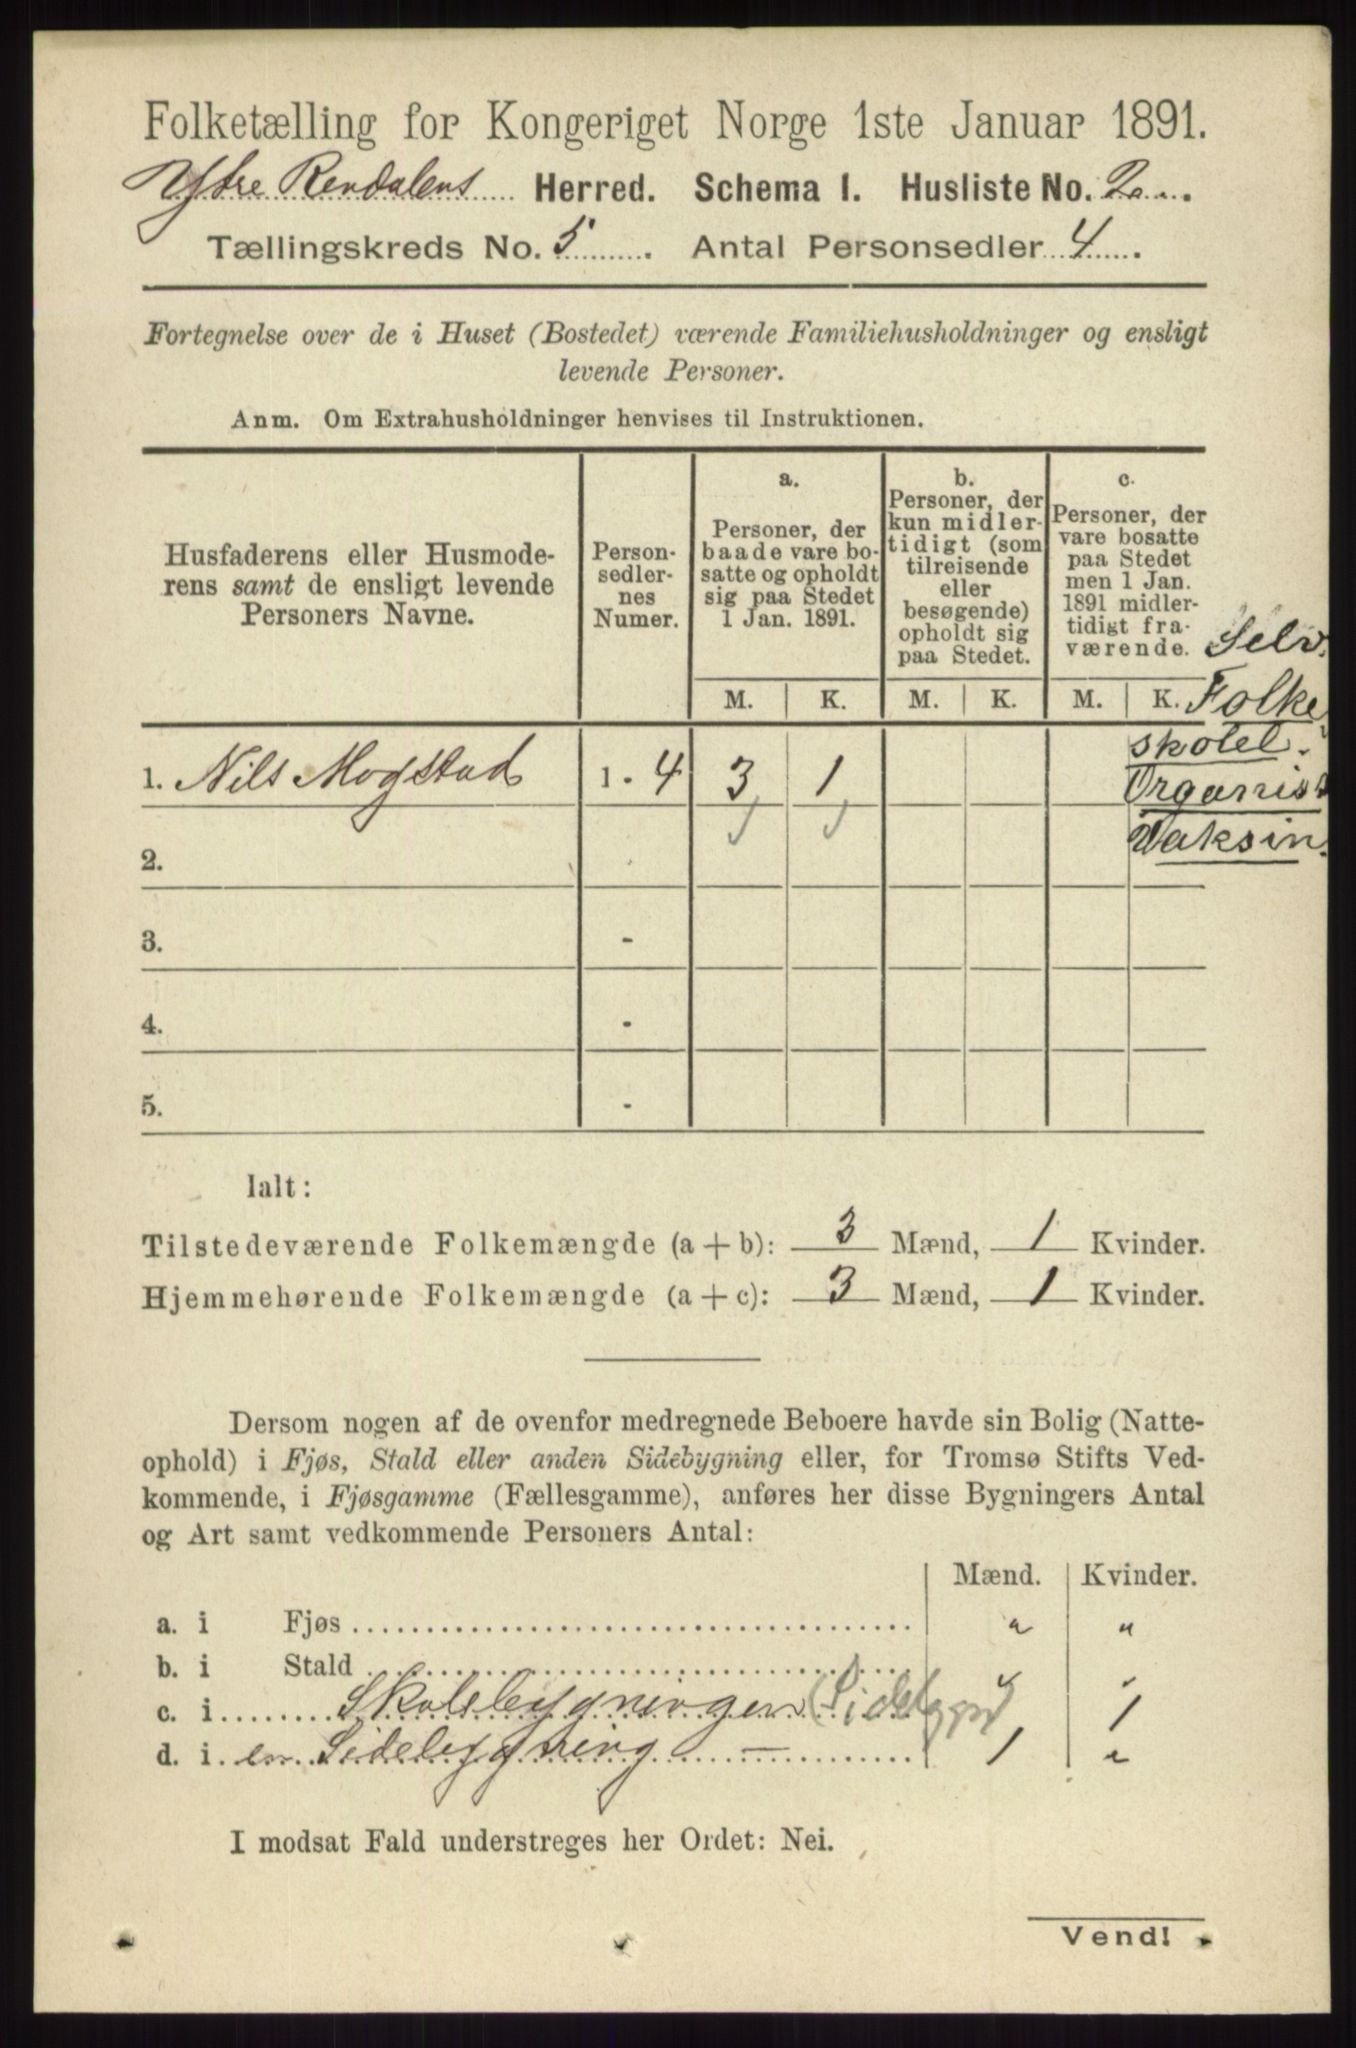 Folketælling for Kongeriget Norge 1ste Januar 1891.
Ytre Rendalens Herred. Schema 1. Husliste No. 2
Tællingskreds No. 5. Antal Personsedler 4.
Fortegnelse over de i Huset (Bostedet) værende Familiehusholdninger og ensligt
levende Personer.
Anm. Om Extrahusholdninger henvises til Instruktionen.
Husfaderens eller Husmode-
rens samt de ensligt levende
Personers Navne.
Person-
sedler-
nes
Numer.
a.
Personer, der
baade vare bo-
satte og opholdt
sig paa Stedet
1 Jan. 1891.
b.
Personer, der
kun midler-
tidigt (som
tilreisende
eller
besøgende)
opholdt sig
paa Stedet.
c.
Personer, der
vare bosatte
paa Stedet
men 1 Jan.
1891 midler-
tidigt fra-
værende.
M. K. M. K. M. K.
Selv.
Folke
skolel.
Organist
Vaksin.
1. Nils Mogstad 1 - 4 3 1
2. -
3. -
4. -
5. -
Ialt:
Tilstedeværende Folkemængde (a + b): 3 Mænd, 1 Kvinder.
Hjemmehørende Folkemængde (a + c): 3 Mænd, 1 Kvinder.
Dersom nogen af de ovenfor medregnede Beboere havde sin Bolig (Natte-
ophold) i Fjøs, Stald eller anden Sidebygning eller, for Tromsø Stifts Ved-
kommende, i Fjøsgamme (Fællesgamme), anføres her disse Bygningers Antal
og Art samt vedkommende Personers Antal:
Mænd. Kvinder.
a. i Fjøs " "
b. i Stald " "
c. i Skolebygningen 1
d. i en Sidebygning — 1 "
I modsat Fald understreges her Ordet: Nei.
Vend!